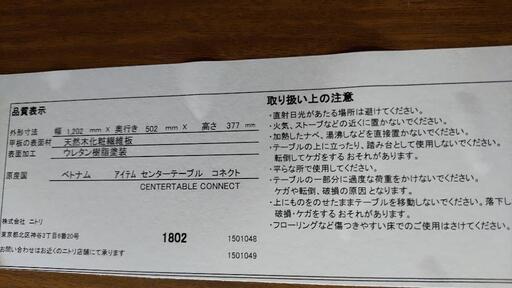 品質表示
外形寸法 幅 1,202 mm X 奥行き 502 mm X 高さ 377 mm
甲板の表面材 天然木化粧繊維板
表面加工 ウレタン樹脂塗装
原産国 ベトナム アイテム センターテーブル コネクト
CENTERTABLE CONNECT
株式会社 ニトリ
東京都北区神谷3丁目6番20号 1802 1501048
お問い合わせはお近くのニトリ店舗にて承ります 1501049
取り扱い上の注意
・直射日光があたる場所は避けてください。
・火気、ストーブなどの近くに置かないでください。
・加熱したナベ、湯沸しなどを直接置かないでください。
・テーブルの上に立ったり、踏み台として使用しないでください。
転倒してケガをするおそれがあります。
・平らな所で使用してください。
・テーブルの一部分に過度な荷重をかけないでください。
ケガや転倒、破損の原因となります。
・上にものをのせたままテーブルを移動しないでください。落下し
破損・ケガをするおそれがあります。
・フローリングなど傷つきやすい床でのご使用はさけてください。